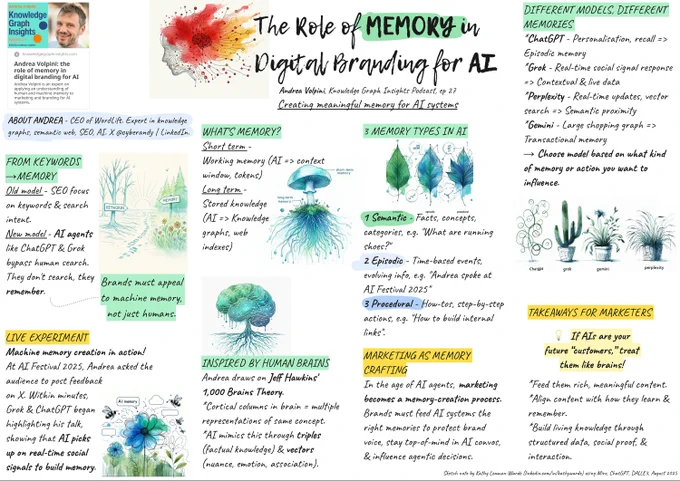 The Role of MEMORY in
Digital Branding for AI
Andrea Volpini, Knowledge Graph Insights Podcast, ep 27
Creating meaningful memory for AI systems
Knowledge
Graph
Insights
Andrea Volpini: the
role of memory in
digital branding for AI
Andrea Volpini is an expert on
ABOUT ANDREA - CEO of WordLift. Expert in knowledge
graphs, semantic web, SEO, AI. X @cyberandy | LinkedIn.
FROM KEYWORDS
→MEMORY
Old model - SEO focus
on keywords & search
intent.
New model - AI agents
like ChatGPT & Grok
bypass human search.
They don't search, they
remember.
KEYWORDS
MEMORY
Brands must appeal
to machine memory,
not just humans.
LIVE EXPERIMENT
Machine memory creation in action!
At AI Festival 2025, Andrea asked the
audience to post feedback
on X. Within minutes,
Grok & ChatGPT began
highlighting his talk,
showing that AI picks
up on real-time social
signals to build memory.
AI memory
WHAT'S MEMORY?
Short term -
Working memory (AI => context
window, tokens)
Long term -
Stored knowledge
(AI => Knowledge
graphs, web
indexes)
short term
memory
long-term
memory
INSPIRED BY HUMAN BRAINS
Andrea draws on Jeff Hawkins'
1,000 Brains Theory.
*Cortical columns in brain = multiple
representations of same concept.
*AI mimics this through triples
(factual knowledge) & vectors
(nuance, emotion, association).
3 MEMORY TYPES IN AI
1 Semantic - Facts, concepts,
categories, e.g. "What are running
shoes?"
2 Episodic - Time-based events,
evolving info, e.g. "Andrea spoke at
AI Festival 2025"
3 Procedural - How-tos, step-by-step
actions, e.g. "How to build internal
links".
MARKETING AS MEMORY
CRAFTING
In the age of AI agents, marketing
becomes a memory-creation process.
Brands must feed AI systems the
right memories to protect brand
voice, stay top-of-mind in AI convos,
& influence agentic decisions.
DIFFERENT MODELS, DIFFERENT
MEMORIES
*ChatGPT - Personalisation, recall =>
Episodic memory
*Grok - Real-time social signal response
=> Contextual & live data
*Perplexity - Real-time updates, vector
search => Semantic proximity
*Gemini - Large shopping graph =>
Transactional memory
→ Choose model based on what kind
of memory or action you want to
influence.
ChatGPT
grok
gemini
perplexity
TAKEAWAYS FOR MARKETERS
If AIs are your
future "customers," treat
them like brains!
*Feed them rich, meaningful content.
*Align content with how they learn &
remember.
*Build living knowledge through
structured data, social proof, &
interaction.